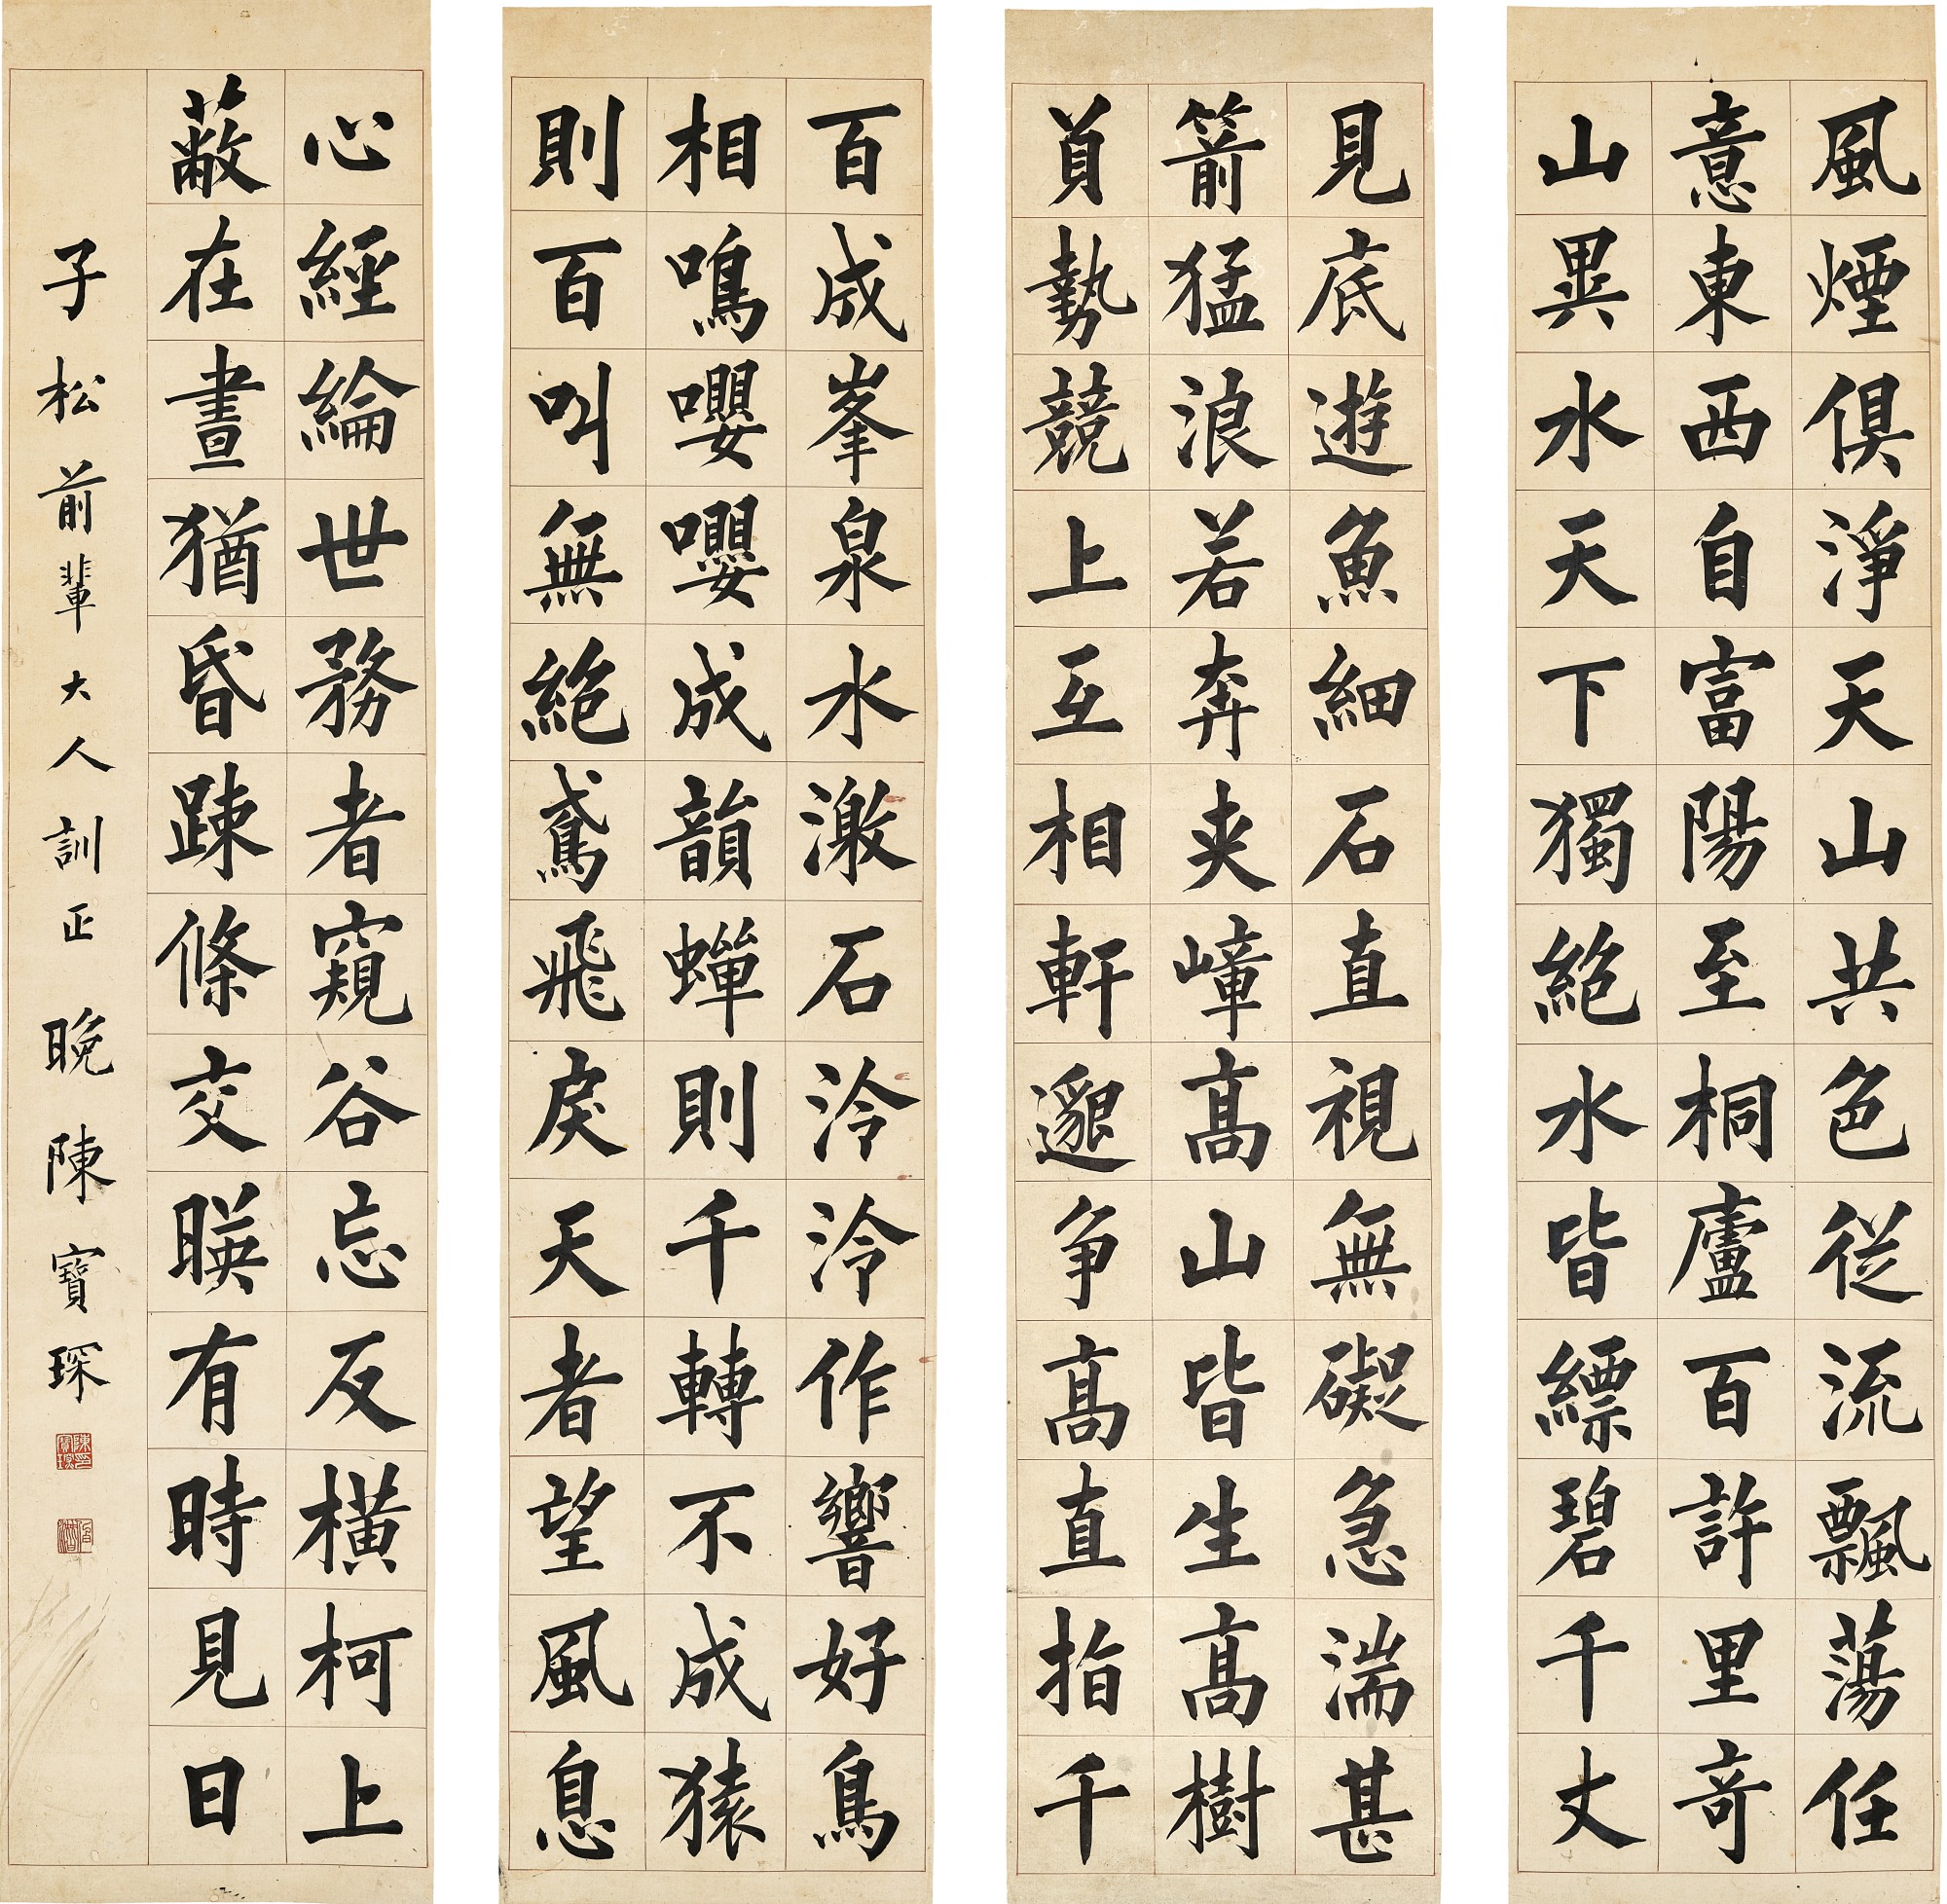 風煙俱淨天山共色從流飄蕩任
意東西自富陽至桐廬百許里奇
山異水天下獨絕水皆縹碧千丈
見底遊魚細石直視無礙急湍甚
箭猛浪若奔夾嶂高山皆生高樹
負勢競上互相軒邈爭高直指千
百成峯泉水激石泠泠作響好鳥
相鳴嚶嚶成韻蟬則千轉不成猿
則百叫無絕鳶飛戾天者望風息
心經綸世務者窺谷忘反橫柯上
蔽在晝猶昏疎條交暎有時見日
子松前輩大人訓正 晚陳寶琛
陳寶琛印
伯潛